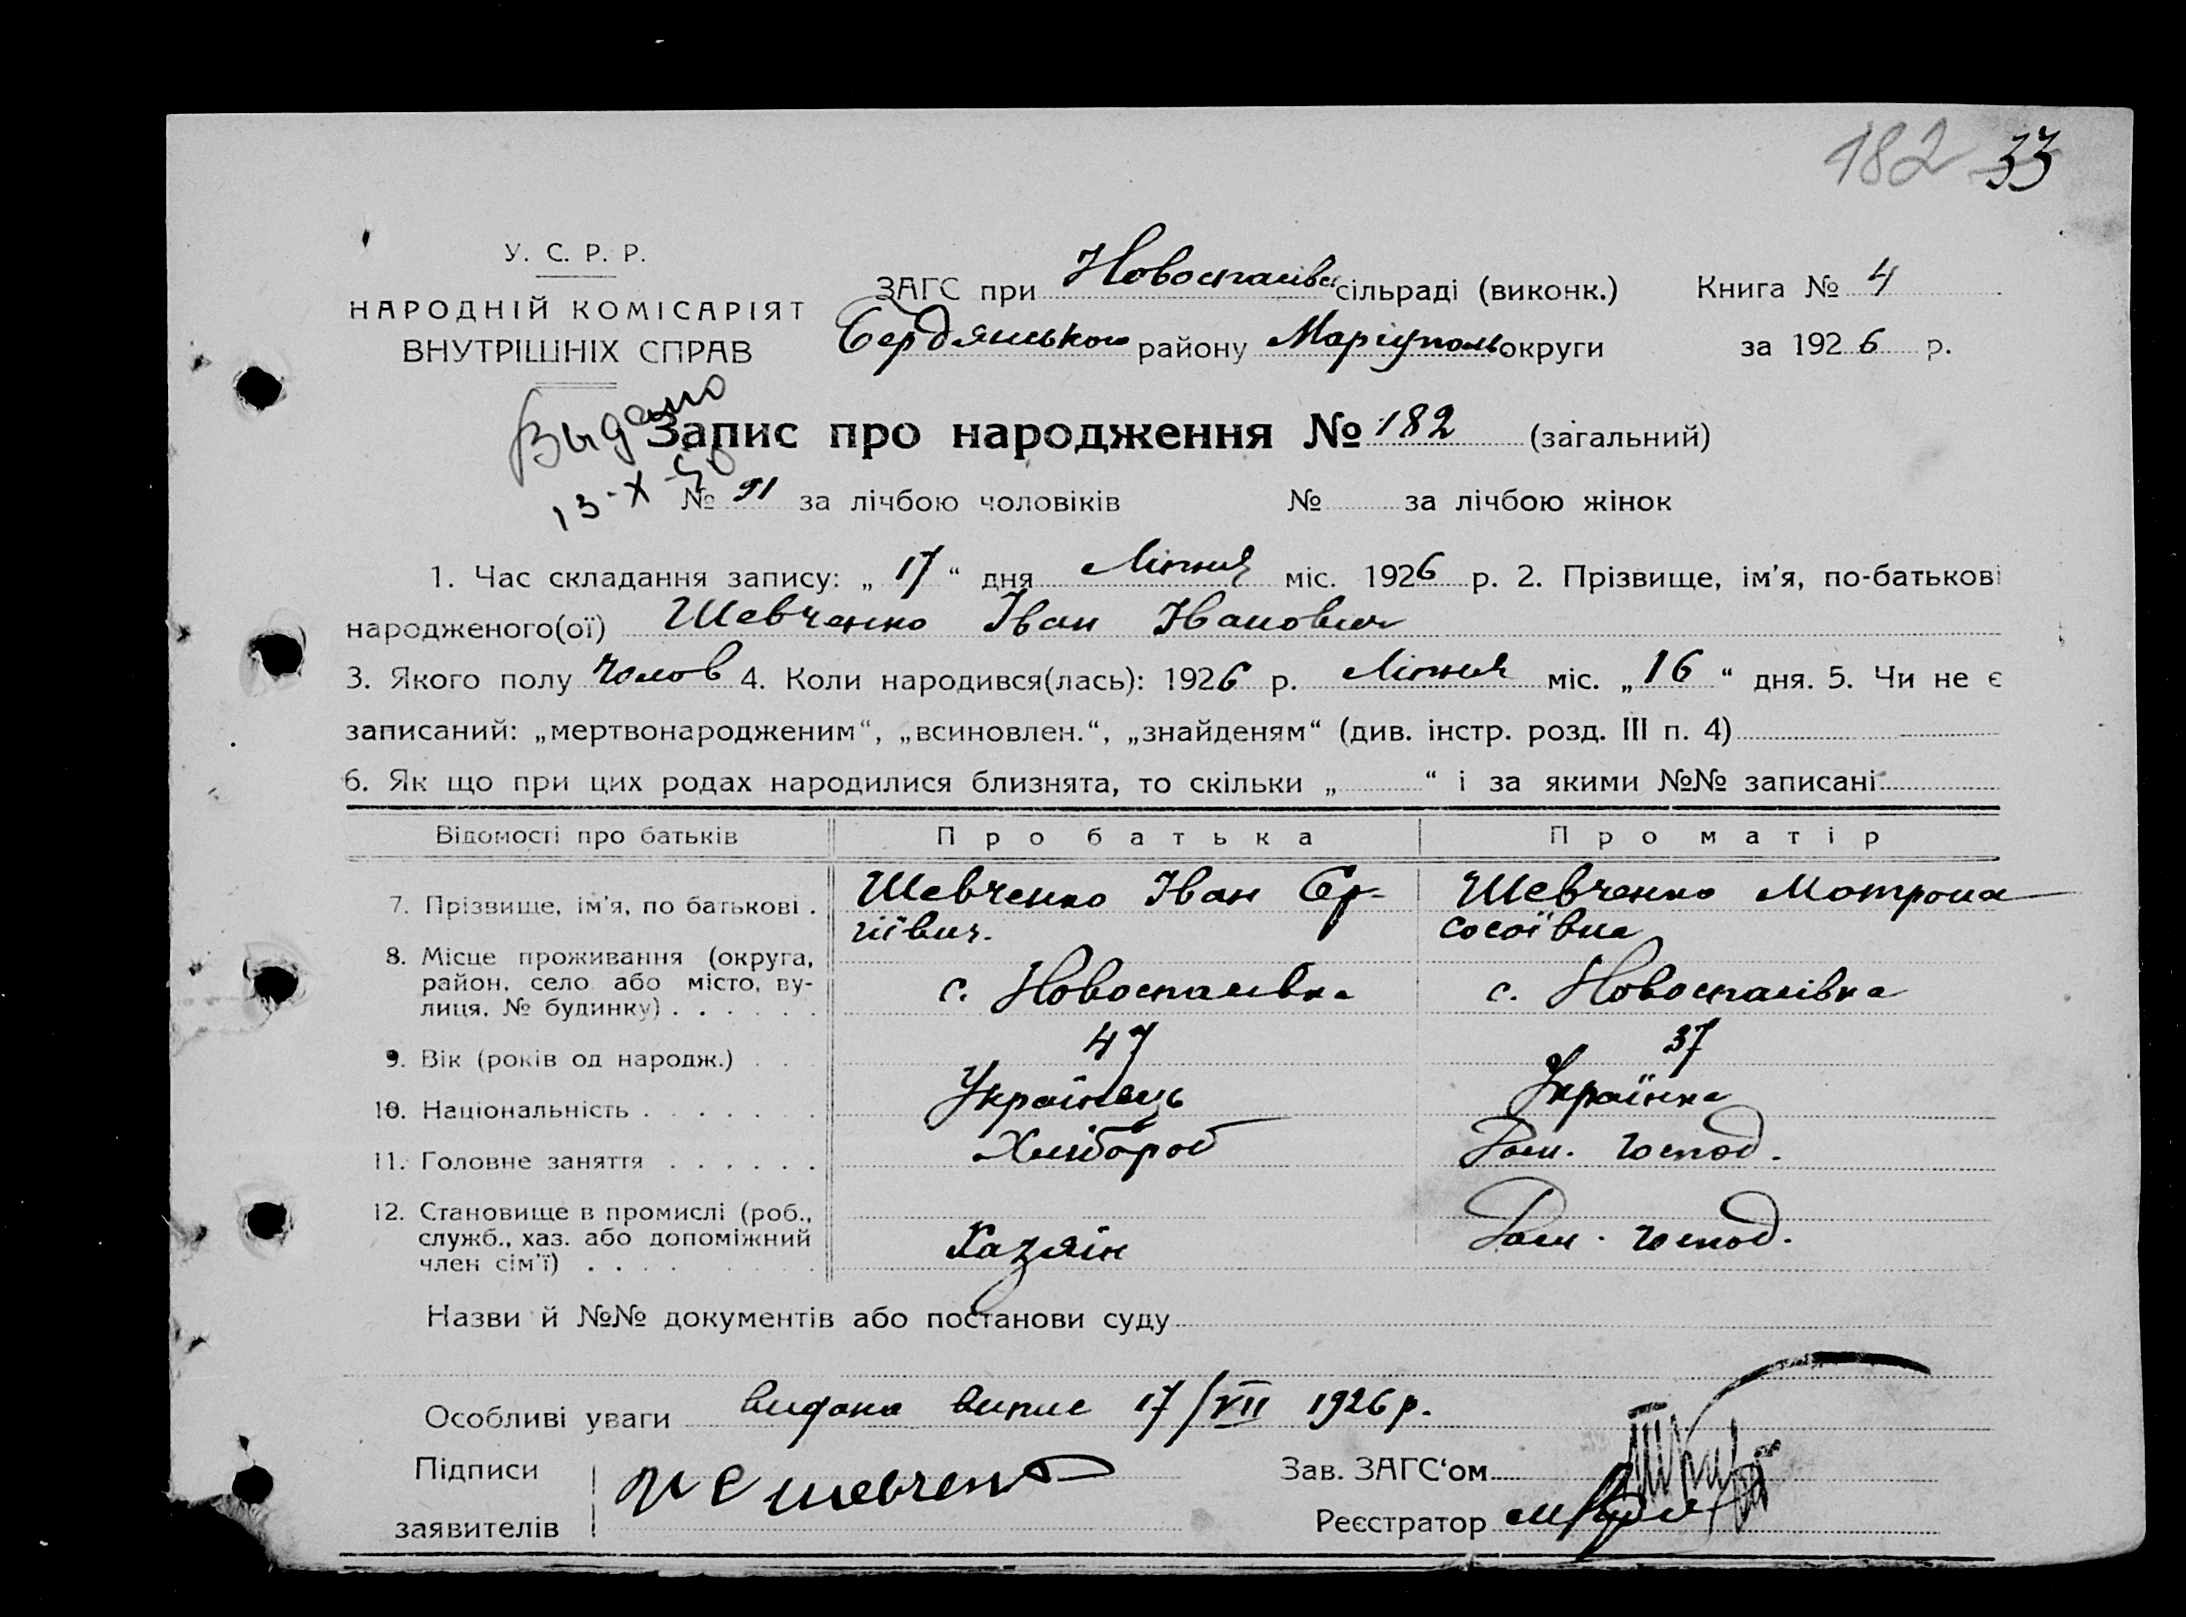 182 33
У. С. Р. Р.
НАРОДНІЙ КОМІСАРІЯТ
ВНУТРІШНІХ СПРАВ
ЗАГС при Новоспасівск сільраді (виконк.) Книга № 4
Бердянського району Маріуполь округи за 1926 р.
Выдано
13-X-50
Запис про народження № 182 (загальний)
№ 91 за лічбою чоловіків № за лічбою жінок
1. Час складання запису: „ 17 “ дня Липня міс. 1926 р. 2. Прізвище, ім’я, по-батькові
народженого(ої) Шевченко Іван Иванович
3. Якого полу чолов 4. Коли народився(лась): 1926 р. Липня міс. „ 16 “ дня. 5. Чи не є
записаний: „мертвонародженим“, „всиновлен.“, „знайденям“ (див. інстр. розд. III п. 4)
6. Як що при цих родах народилися близнята, то скільки „ “ і за якими №№ записані
Відомості про батьків Про батька Про матір
7. Прізвище, ім’я, по батькові . Шевченко Іван Сер- Шевченко Мотрона
гіївич. Сосоївна
8. Місце проживання (округа,
район, село або місто, ву-
лиця, № будинку) . . . . . . с. Новоспасівка с. Новоспасівка
9. Вік (років од народж.) . . . 47 37
10. Національність . . . . . . . Українець Українка
11. Головне заняття . . . . . . Хлібороб Дом. господ.
12. Становище в промислі (роб.,
служб., хаз. або допоміжний
член сім’ї) . . . . Хазяїн Дом. господ.
Назви й №№ документів або постанови суду
Особливі уваги видана випис 17/VII 1926 р.
Підписи
заявителів
Шевченко
Зав. ЗАГС‘ом
Реєстратор